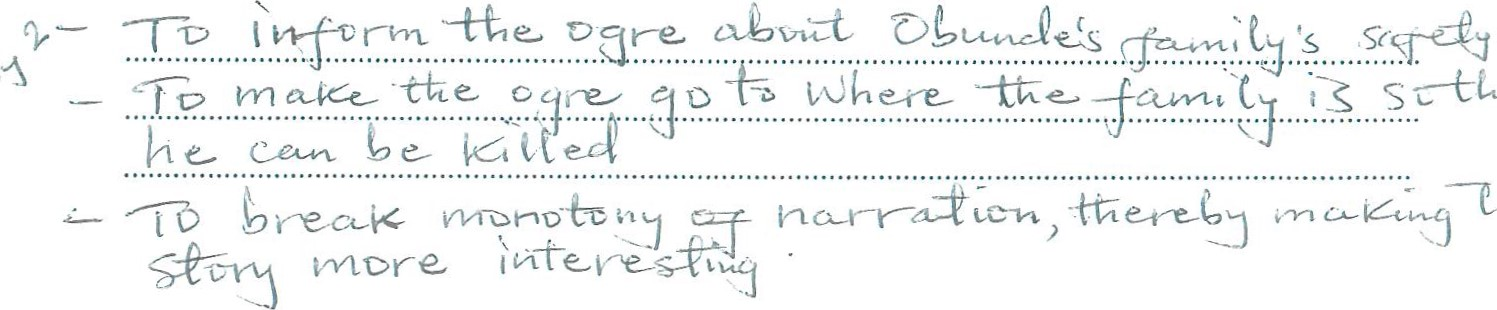 - To inform the ogre about Obunde's family's safety
- To make the ogre go to where the family is so th
he can be killed
- To break monotony of narration, thereby making t
story more interesting.